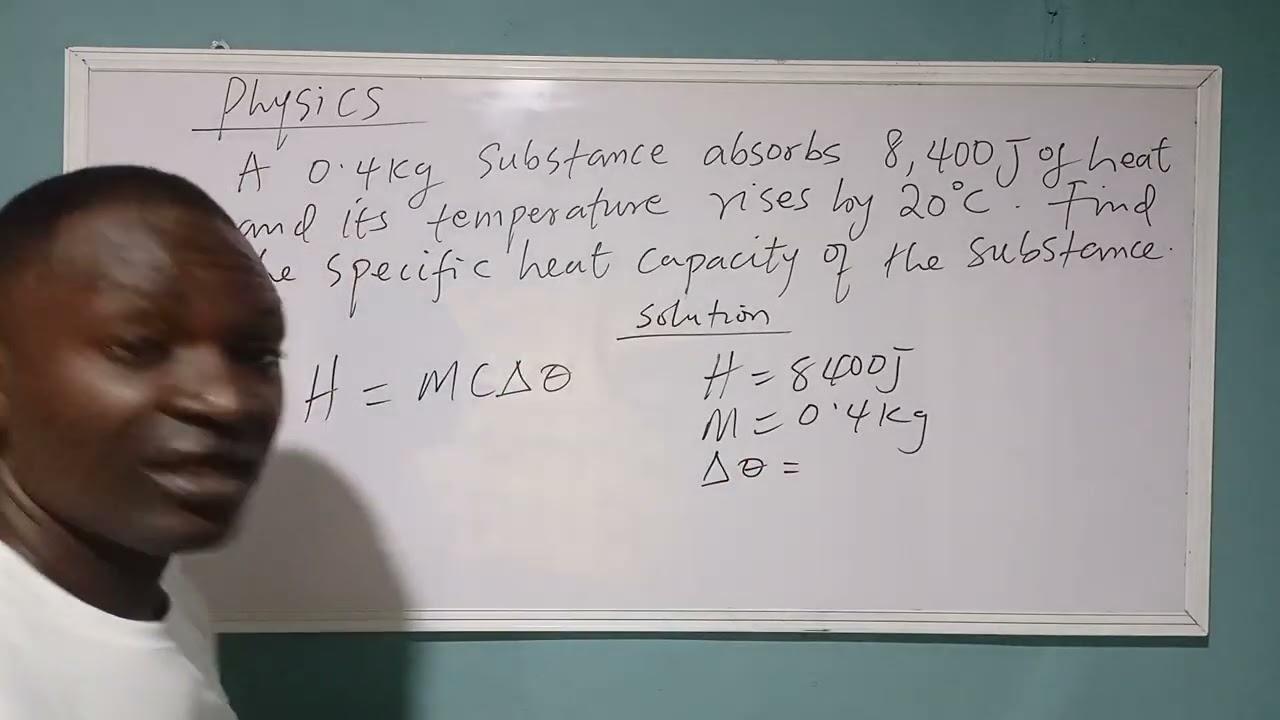 Physics
A 0.4kg substance absorbs 8,400J of heat
and its temperature rises by 20°C. Find
he specific heat capacity of the substance.
Solution
H = MCΔθ
H = 8400J
M = 0.4kg
Δθ =